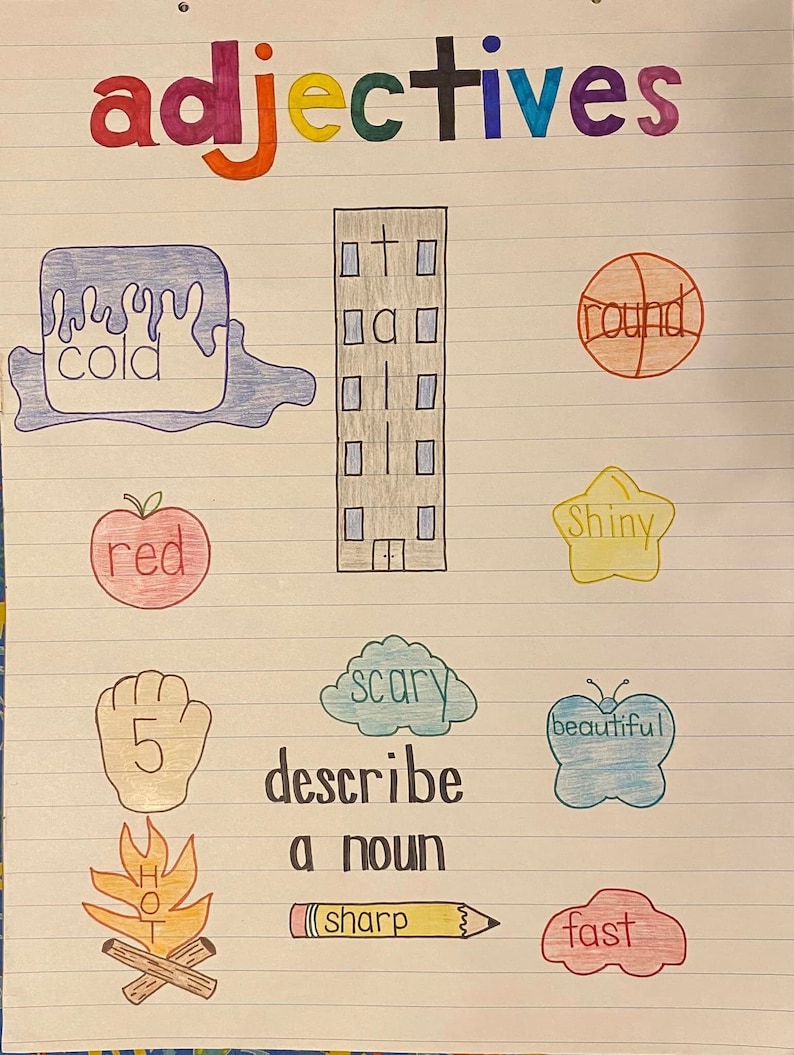 adjectives
cold
tall
round
red
Shiny
5
scary
beautiful
describe
a noun
HOT
sharp
fast